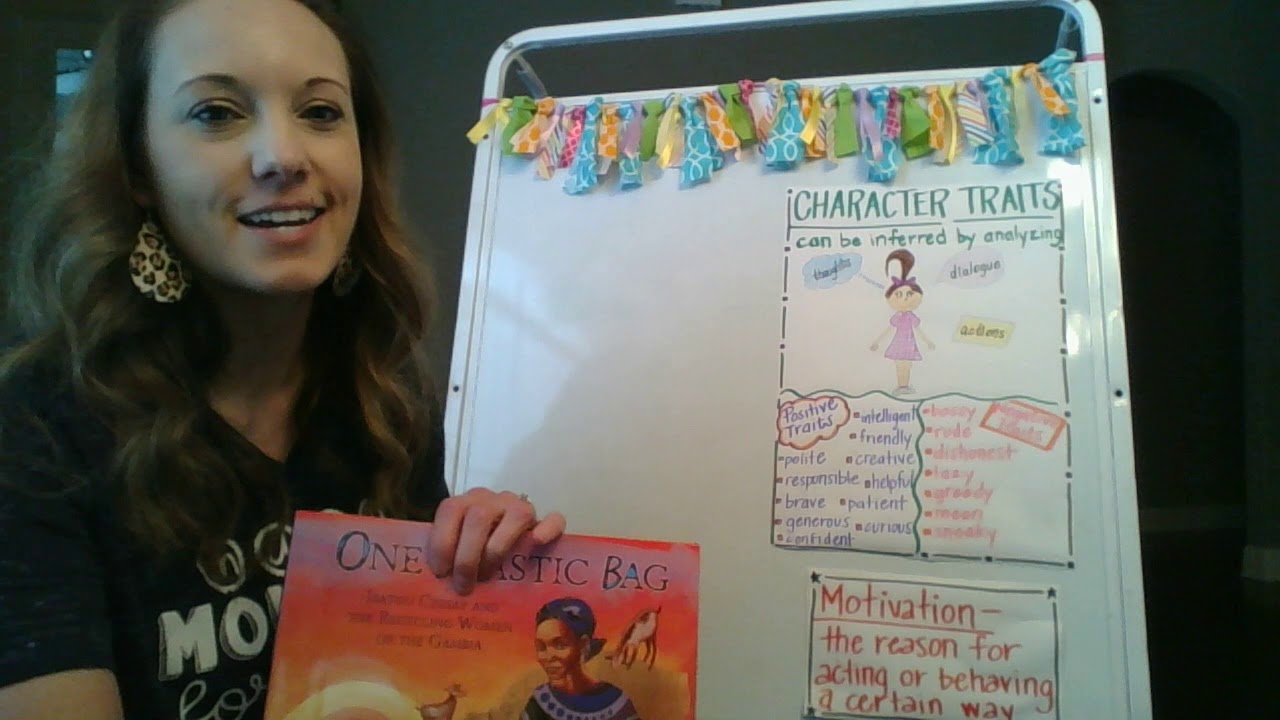 CHARACTER TRAITS
can be inferred by analyzing
thoughts
dialogue
actions
Positive
Traits
intelligent
friendly
polite
creative
responsible
helpful
brave
patient
generous
curious
confident
bossy
rude
dishonest
lazy
greedy
mean
sneaky
Traits
Motivation-
the reason for
acting or behaving
a certain way
ONE BAG
ISATOU CEESAY AND
THE RECYCLING WOMEN
OF THE GAMBIA